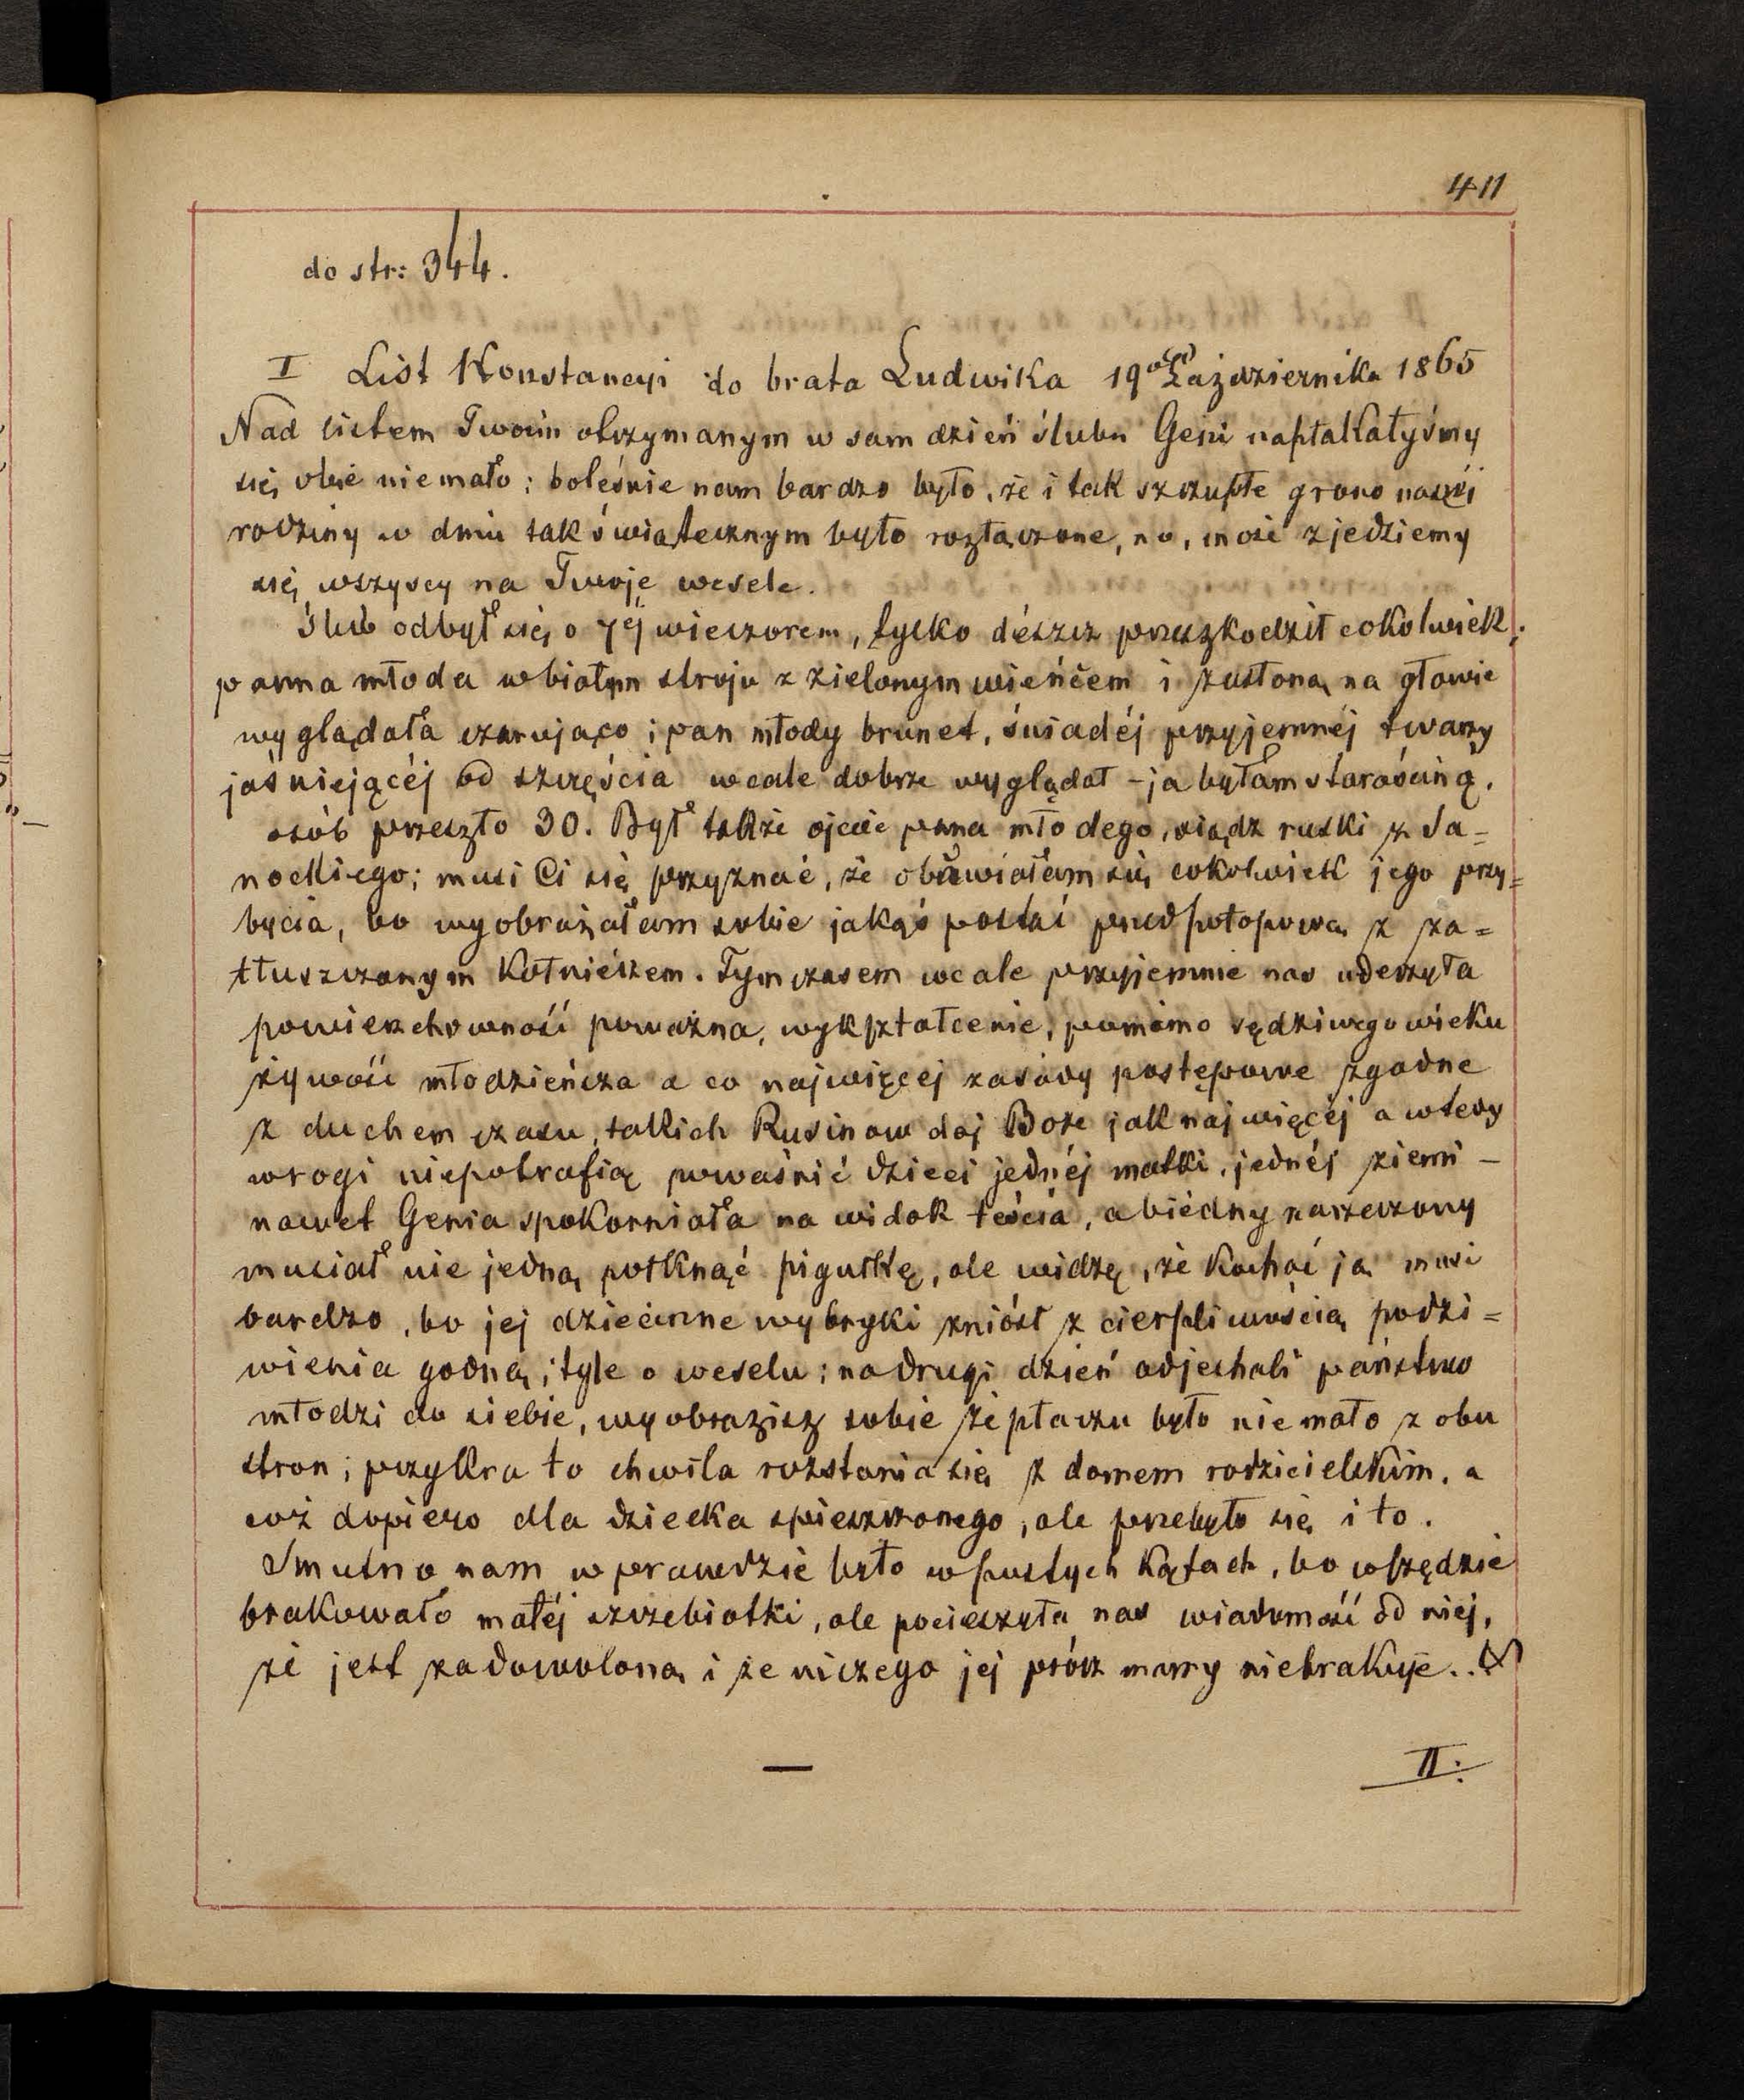 411
do str: 344.
I List Konstancyi do brata Ludwika 19go Października 1865
Nad listem Twoim otrzymanym w sam dzień ślubu Geni napłakałyśmy
się obie niemało; boleśnie nam bardzo było, że i tak szczupłe grono naszéj
rodziny w dniu tak świątecznym było rozłączone, no, może zjedziemy
się wszyscy na Twoje wesele.
Ślub odbył się o 7éj wieczorem, tylko dészcz przeszkodził cokolwiek;
panna młoda w białym stroju z zielonym wieńcem i zasłoną na głowie
wyglądała czarująco i pan młody brunet, śniadéj przyjemnéj twarzy
jaśniejącéj od szczęścia wcale dobrze wyglądał – ja byłam starościną,
osób przeszło 30. Był także ojciec pana młodego, ksiądz ruski z Sa=
nockiego; musi Ci się przyznać, że obawiałam się cokolwiek jego przy=
bycia, bo wyobrażałam sobie jakąś postać przedpotopową z za=
tłuszczonym kołniészem. Tymczasem wcale przyjemnie nas uderzyła
powierzchowność poważna, wykształcenie, pomimo sędziwego wieku
żywość młodzieńcza a co najwięcej zasady postępowe zgodne
z duchem czasu, takich Rusinow daj Boże jak najwięcéj a wtedy
wrogi niepotrafią powaśnić dzieci jednéj matki, jednéj ziemi –
nawet Genia spokorniała na widok teścia, a biédny narzeczony
musiał nie jedną połknąć pigułkę, ale widzę, że kochać ją musi
bardzo, bo jej dziecinne wybryki zniósł z cierpliwością podzi=
wienia godną; tyle o weselu; na drugi dzień odjechali państwo
młodzi do siebie, wyobrazisz sobie że płaczu było nie mało z obu
stron; przykra to chwila rozstania się z domem rodzicielskim, a
coż dopiero dla dziecka spieszczonego, ale przebyło się i to.
Smutno nam wprawdzie było w pustych kątach, bo wszędzie
brakowało małéj szczebiotki, ale pocieszyła nas wiadomość od niej,
że jest zadowoloną i że niczego jej prócz mamy niebrakuje..
II: